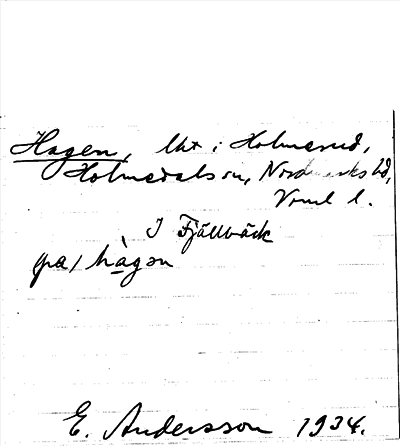 Hagen, lht i Holmerud,
Holmedals sn, Nordmarks hd,
Vrml l.
I Fjällbäck
pa / hàgən
E. Andersson 1934.